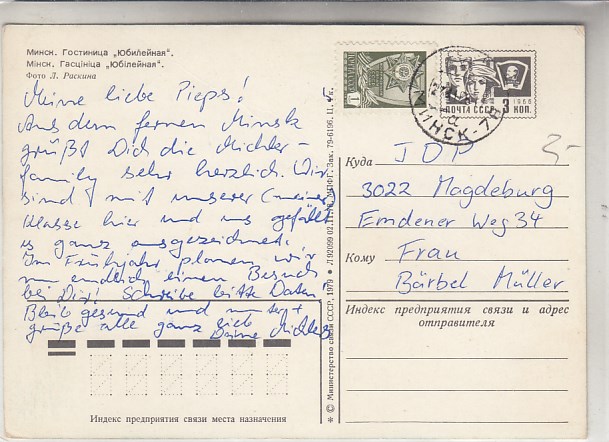 Минск. Гостиница „Юбилейная“.
Мінск. Гасцініца „Юбілейная“.
Фото Л. Раскина
Meine liebe Pieps!
Aus dem fernen Minsk
grüßt Dich die Michler-
family sehr herzlich. Wir
sind mit unserer (meiner)
Klasse hier und uns gefällt
es ganz ausgezeichnet.
Im Frühjahr planen wir
nun endlich einen Besuch
bei Dir! Schreibe bitte Daten!
Bleib gesund und munter +
grüße alle ganz lieb
Deine Michler
Индекс предприятия связи места назначения
* © Министерство связи СССР, 1979 • Л 92099 02.11.79. МПФГ. Зак. 79-6196. Ц. к.
ПОЧТА СССР 3 КОП.
1966
МИНСК-7
3-
Куда JDP
3022 Magdeburg
Emdener Weg 34
Кому Frau
Bärbel Müller
Индекс предприятия связи и адрес
отправителя